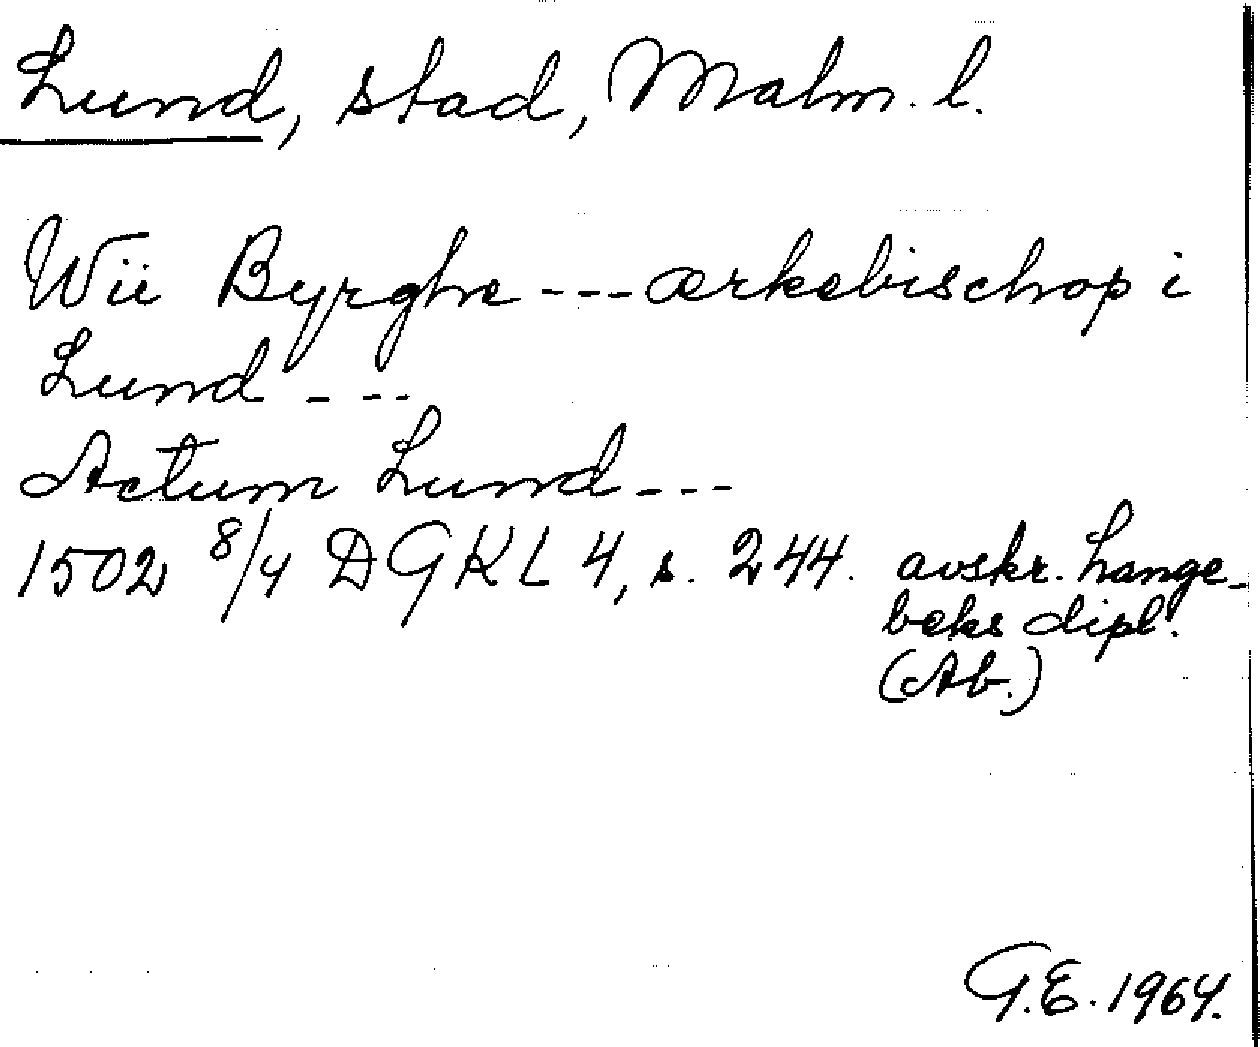 Lund, stad, Malm. l.
Wii Byrghe --- ærkebischop i
Lund ---
Actum Lund ---
1502 8/4 DGKL 4, s. 244. avskr. Lange-
beks dipl.
(Ab.)
G.E. 1964.